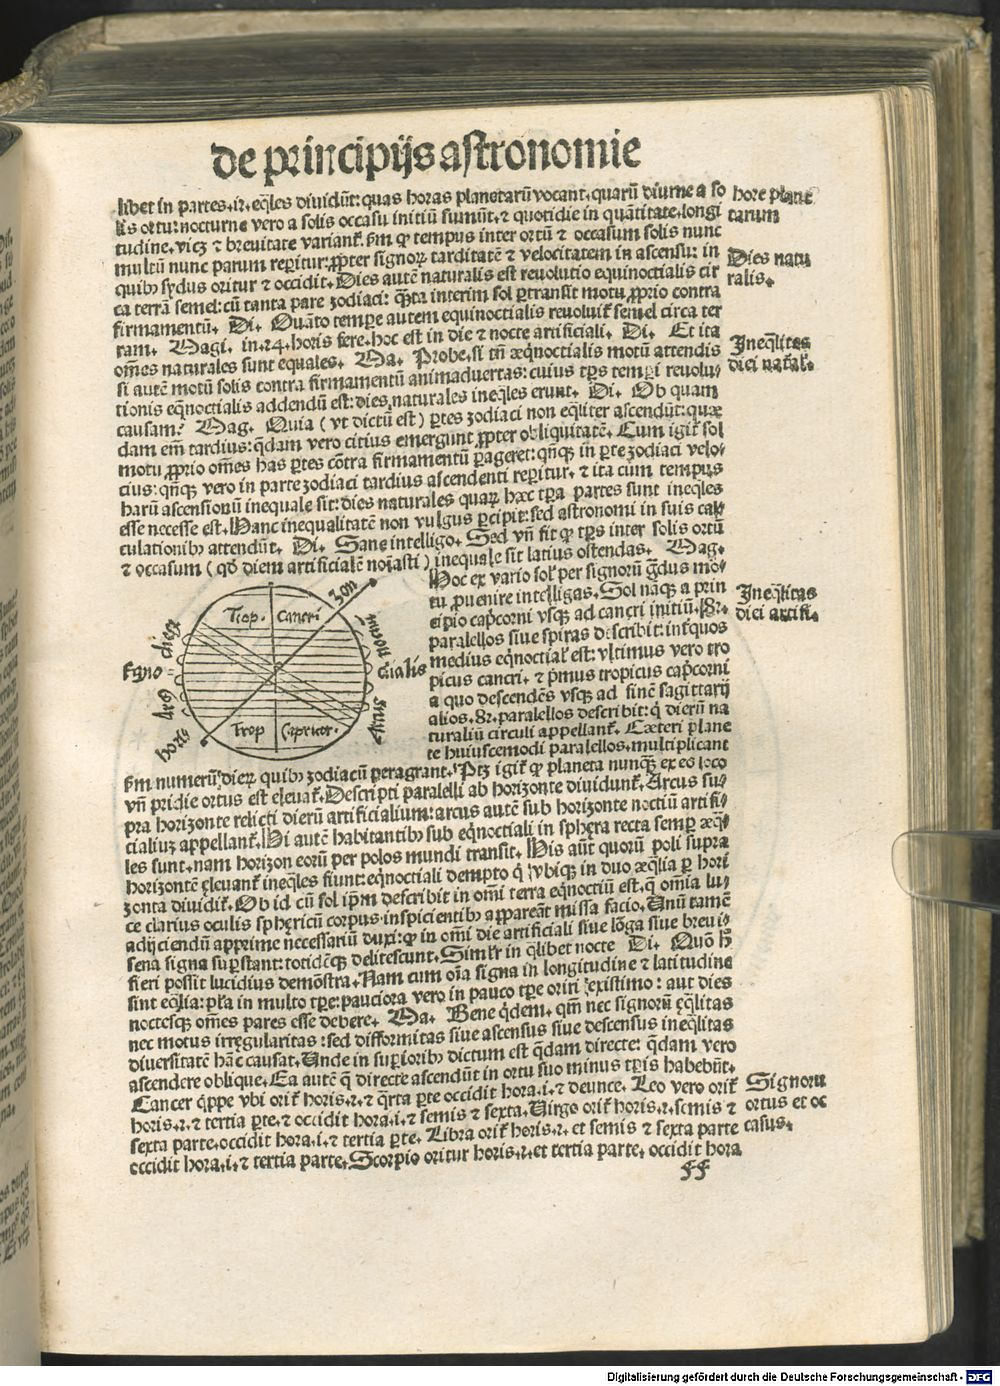 de principijs astronomie
libet in partes .12. eq̃les diuidũt: quas horas planetarũ vocant. quarũ diurne a so
lis ortu: nocturne vero a solis occasu initiũ sumũt. ⁊ quotidie in quãtitate. longi
tudine. viꝫ ⁊ breuitate variant᷑. s̃m ꝙ tempus inter ortũ ⁊ occasum solis nunc
multũ nunc parum reperitur: ꝓpter signoꝝ tarditatẽ ⁊ velocitatem in ascensu: in
quibꝰ sydus oritur ⁊ occidit. Dies autẽ naturalis est reuolutio equinoctialis cir
ca terrã semel: cũ tanta parte zodiaci: q̃ta interim sol ꝑtransit motu ꝓprio contra
firmamentũ. Di. Quãto tempore autem equinoctialis reuoluit᷑ semel circa ter
ram. Magi. in .24. horis fere. hoc est in die ⁊ nocte artificiali. Di. Et ita
om̃es naturales sunt equales. Ma. Probe. si tm̃ eq̃noctialis motũ attendis
si autẽ motũ solis contra firmamentũ animaduertas: cuius tp̃s tempori reuolu⸗
tionis eq̃noctialis addendũ est: dies naturales ineq̃les erunt. Di. Ob quam
causam? Mag. Quia (vt dictũ est) ꝑtes zodiaci non eq̃liter ascendũt: quæ
dam em̃ tardius: q̃dam vero citius emergunt ꝓpter obliquitatẽ. Cum igit᷑ sol
motu ꝓprio om̃es has ꝑtes cõtra firmamentũ ꝑageret: qñqꝫ in ꝑte zodiaci velo⸗
cius: qñqꝫ vero in parte zodiaci tardius ascendenti reperitur. ⁊ ita cum tempus
harũ ascensionũ inequale sit: dies naturales quaꝝ hæc tp̃a partes sunt ineq̃les
esse necesse est. Hanc inequalitatẽ non vulgus ꝑcipit: sed astronomi in suis cal⸗
culationibꝰ attendũt. Di. Sane intelligo. Sed vñ fit ꝙ tp̃s inter solis ortũ
⁊ occasum (qď diem artificialẽ noĩasti) inequale sit latius ostendas. Mag.
Hoc ex vario sol᷑ per signorũ g̃dus mo⸗
tu ꝓuenire intelligas. Sol nãqꝫ a prin
cipio cap̃corni vsqꝫ ad cancri initiũ .182.
paralellos siue spiras describit: int᷑ quos
medius eq̃noctial᷑ est: vltimus vero tro
picus cancri. ⁊ p̃mus tropicus cap̃corni
a quo descendẽs vsqꝫ ad finẽ sagittarij
alios .82. paralellos describit: q̃ dierũ na
turaliũ circuli appellant᷑. Cæteri plane
te huiuscemodi paralellos. multiplicant
s̃m numerũ dieꝝ quibꝰ zodiacũ peragrant. Ptꝫ igit᷑ ꝙ planeta nunqꝫ ex eo loco
vñ pridie ortus est eleuat᷑. Descripti paralelli ab horizonte diuidunt᷑. Arcus su⸗
pra horizonte relicti dierũ artificialium: arcus autẽ sub horizonte noctiũ artifi⸗
cialiuꝫ appellant᷑. Hi autẽ habitantibꝰ sub eq̃noctiali in sphęra recta semꝑ æq̃⸗
les sunt. nam horizon eorũ per polos mundi transit. His aũt quorũ poli supra
horizontẽ ęleuant᷑ ineq̃les fiunt: eq̃noctiali dempto q̃ vbiqꝫ in duo æq̃lia ꝑ hori
zonta diuidit᷑. Ob id cũ sol ip̃m describit in omĩ terra eq̃noctiũ est. q̃ omĩa lu⸗
ce clarius oculis sphęricũ corpus inspicientibꝰ appareãt missa facio. Unũ tamẽ
adijciendũ apprime necessariũ duxi: ꝙ in omĩ die artificiali siue lõga siue breui
sena signa suꝑstant: totidẽqꝫ delitescunt. Similr᷑ in q̃libet nocte Di. Quõ h̃
fieri possit lucidius demõstra. Nam cum oĩa signa in longitudine ⁊ latitudine
sint eq̃lia: pl᷑a in multo tp̃e: pauciora vero in pauco tp̃e oriri existimo: aut dies
noctesqꝫ om̃es pares esse debere. Ma. Bene q̃dem. qm̃ nec signorũ ęq̃litas
nec motus irręgularitas: sed difformitas siue ascensus siue descensus ineq̃litas
diuersitatẽ hãc causat. Unde in superioribꝰ dictum est q̃dam directe: q̃dam vero
ascendere oblique. Ea autẽ q̃ directe ascendũt in ortu suo minus tp̃is habebũt.
Cancer q̃ppe vbi orit᷑ horis .2. ⁊ q̃rta ꝑte occidit hora .i. ⁊ deunce. Leo vero orit᷑
horis .2. ⁊ tertia ꝑte. ⁊ occidit hora .i. ⁊ semis ⁊ sexta. Uirgo orit᷑ horis .2. semis ⁊
sexta parte. occidit hora .i. ⁊ tertia ꝑte. Libra orit᷑ horis .2. et semis ⁊ sexta parte
occidit hora .i. ⁊ tertia parte. Scorpio oritur horis .2. et tertia parte. occidit hora
ff
hore plane
tarum
Dies natu
ralis.
Ineq̃litas
diei nat᷑al᷑.
Ineq̃litas
diei artifi.
Signorũ
ortus et oc
casus.
Trop. Cancri
zon
Trop Capricor.
Eqno
ctialis
hori
Digitalisierung gefördert durch die Deutsche Forschungsgemeinschaft - DFG